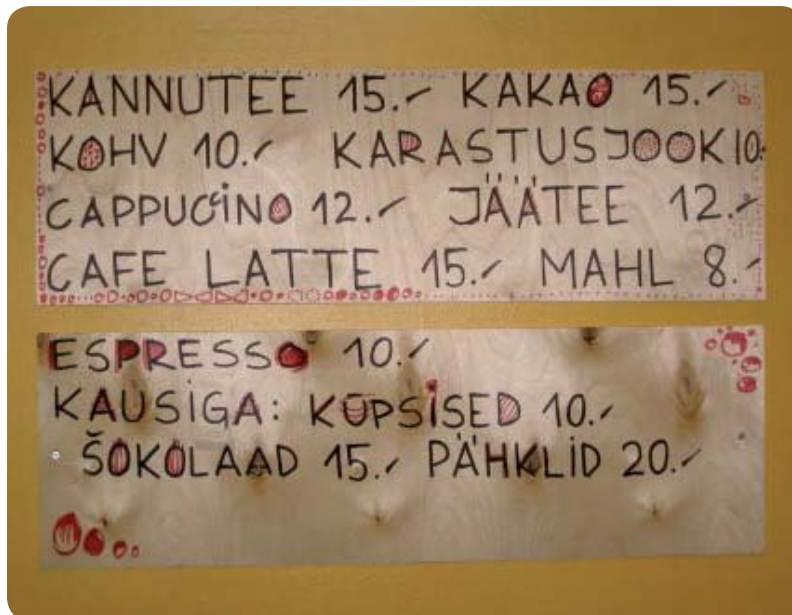 KANNUTEE 15.- KAKAO 15.-
KOHV 10.- KARASTUSJOOK 10.
CAPPUCINO 12.- JÄÄTEE 12.-
CAFE LATTE 15.- MAHL 8.-
ESPRESSO 10.-
KAUSIGA: KÜPSISED 10.-
ŠOKOLAAD 15.- PÄHKLID 20.-